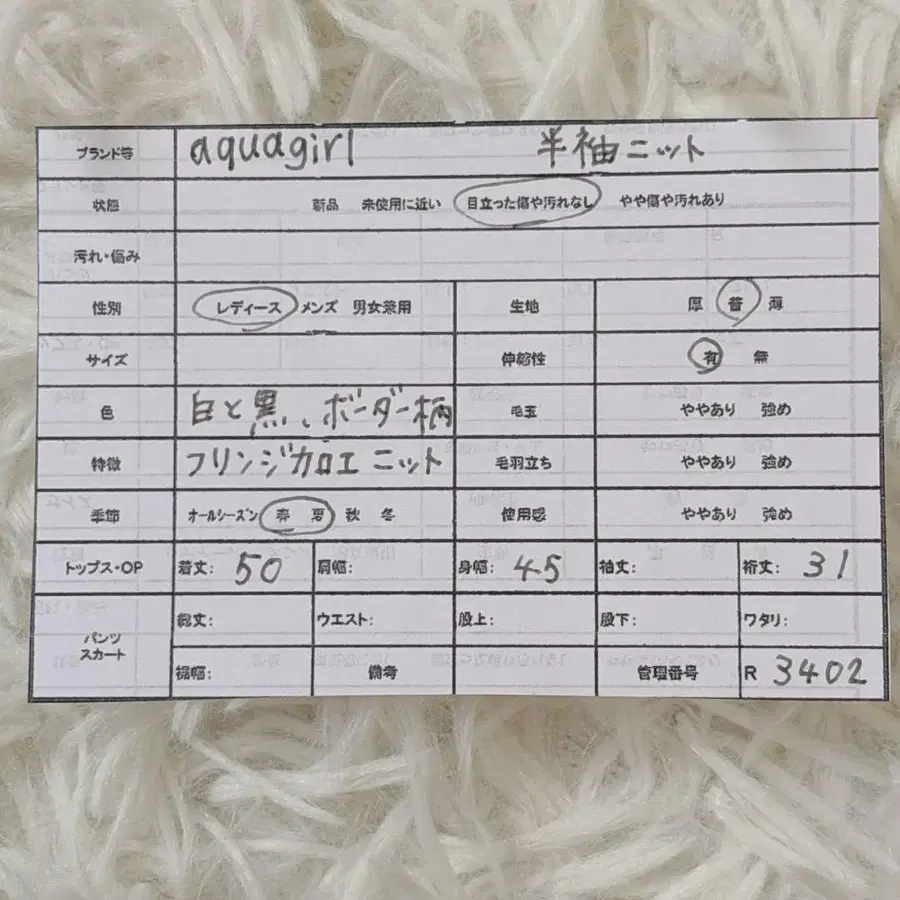 ブランド等 aquagirl 半袖ニット
状態 新品 未使用に近い 目立った傷や汚れなし やや傷や汚れあり
汚れ・傷み
性別 レディース メンズ 男女兼用 生地 厚 普 薄
サイズ 伸縮性 有 無
色 白と黒、ボーダー柄 毛玉 ややあり 強め
特徴 フリンジカロエ ニット 毛羽立ち ややあり 強め
季節 オールシーズン 春 夏 秋 冬 使用感 ややあり 強め
トップス・OP 着丈: 50 肩幅: 身幅: 45 袖丈: 裄丈: 31
パンツ
スカート
総丈: ウエスト: 股上: 股下: ワタリ:
裾幅: 備考 管理番号 R 3402